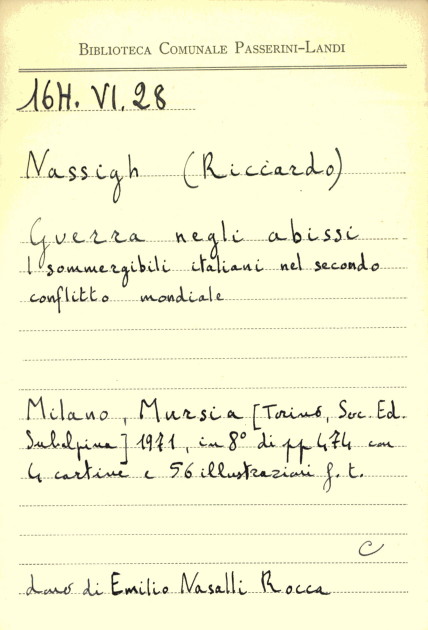 BIBLIOTECA COMUNALE PASSERINI-LANDI
16H. VI. 28
Nassigh (Riccardo)
Guerra negli abissi
I sommergibili italiani nel secondo
conflitto mondiale
Milano, Mursia [Torino, Soc. Ed.
Subalpina] 1971, in 8° di pp 474 con
4 cartine e 56 illustrazioni f. t.
C
dono di Emilio Nasalli Rocca